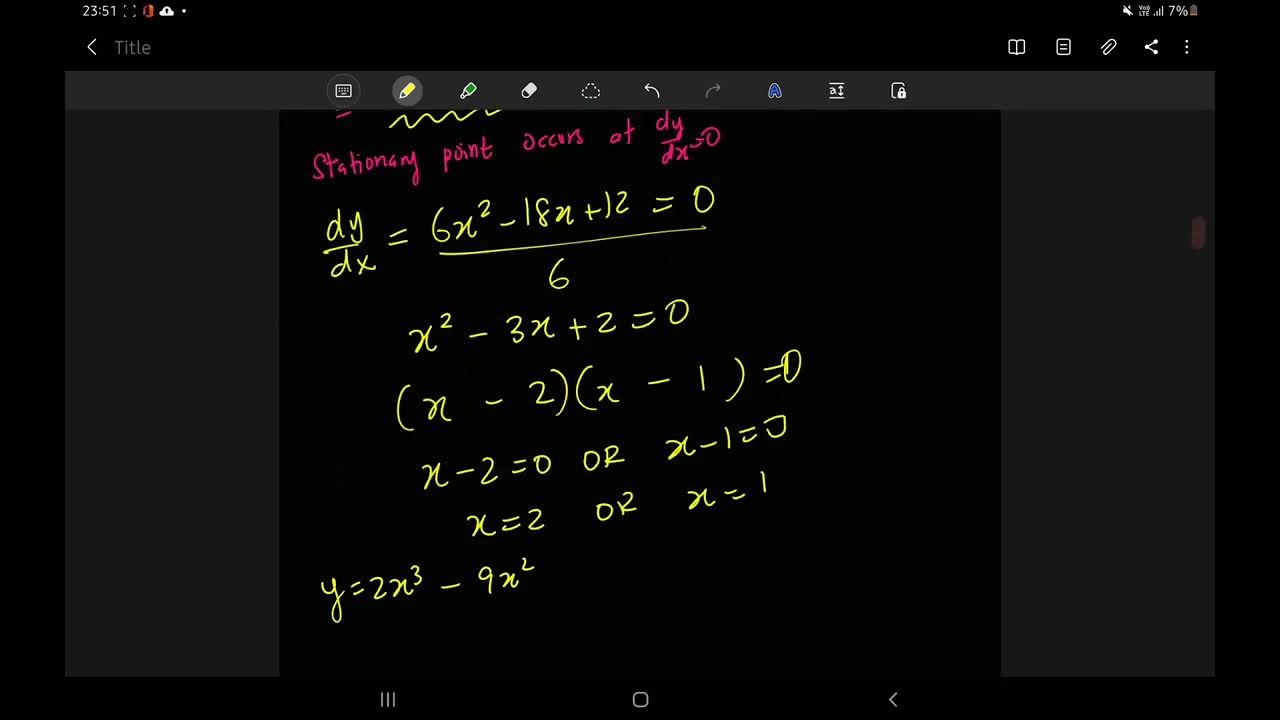 23:51 7%
Title
Stationary point occurs at dy/dx=0
dy/dx = 6x² - 18x + 12 = 0
6
x² - 3x + 2 = 0
(x - 2)(x - 1) = 0
x - 2 = 0 OR x - 1 = 0
x = 2 OR x = 1
y = 2x³ - 9x²